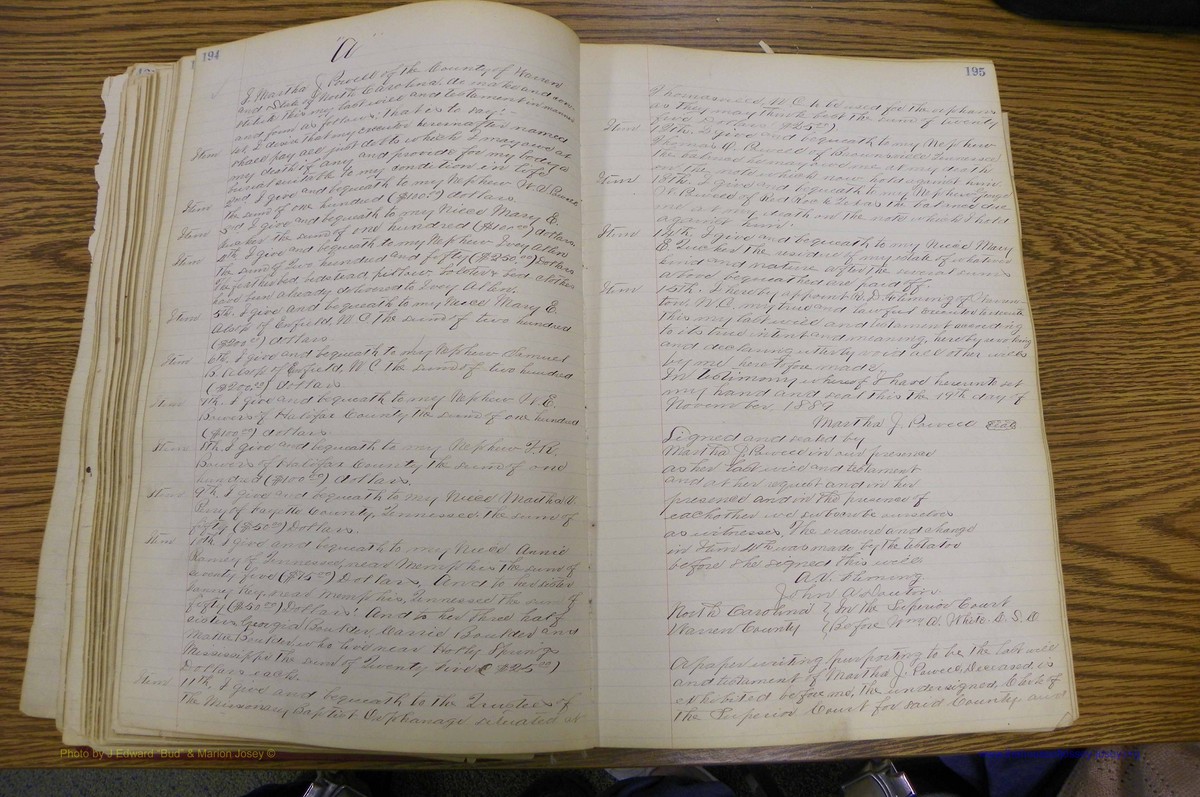 194
"A"
I Martha J. Powell of the County of Warren
and State of North Carolina, do make and
this my last will and testament in manner
and form as follows: that is to say: -
Item 1st. I desire that my executor hereinafter named
shall pay all just debts which I may owe at
my death if any and provide for my body a
burial suitable to my condition in life
Item 2nd I give and bequeath to my Nephew W. A. Powell
the sum of one hundred ($100.00) dollars.
Item 3rd I give and bequeath to my Niece Mary E.
Tucker the sum of one hundred ($100.00) dollars
Item 4th I give and bequeath to my Nephew Ivey Allen
the sum of two hundred and fifty ($250.00) Dollars
bed, bedstead, pillow, bolster & bed clothes
have been already delivered to Ivey Allen.
Item 5th. I give and bequeath to my Niece Mary E.
Alsop of Enfield, N. C. the sum of two hundred
($200.00) dollars
Item 6th. I give and bequeath to my Nephew Samuel
B. Alsop of Enfield, N. C. the sum of two hundred
($200.00) dollars.
Item 7th. I give and bequeath to my Nephew W. E.
Bowers of Halifax County the sum of one hundred
($100.00) dollars.
Item 8th. I give and bequeath to my Nephew J. R.
Bowers of Halifax County the sum of one
hundred ($100.00) dollars.
Item 9th. I give and bequeath to my Niece Martha V.
of Fayette County, Tennessee the sum of
fifty ($50.00) Dollars.
Item 10th. I give and bequeath to my Niece Annie
of Tennessee, near Memphis, the sum of
seventy five ($75.00) Dollars, And to her sister
near Memphis, Tennessee the sum of
fifty ($50.00) Dollars. And to her three half
sisters Georgia Boulden, Carrie Boulden and
Mattie Boulden who live near Holly Springs
Mississippi the sum of Twenty five ($25.00)
Dollars each.
Item 11th. I give and bequeath to the Trustees of
the Missionary Baptist Orphanage situated at
195
Thomasville, N. C. to be used for the orphans
as they may think best the sum of twenty
five Dollars ($25.00)
Item 12th. I give and bequeath to my Nephew
Thomas O. Powell of Brownsville Tennessee
the balance he may owe me at my death
on the note which I now hold against him.
Item 13th. I give and bequeath to my Nephew
W. Powell of Red Rock Texas the balance due
me at my death on the note which I hold
against him.
Item 14th. I give and bequeath to my Niece Mary
E. Tucker the residue of my estate of whatever
kind and nature after the several sums
above bequeathed are paid off.
Item 15th. I hereby appoint Fleming of Warren-
ton, N. C. my true and lawful executor to execute
this my last will and testament according
to its true intent and meaning, hereby revoking
and declaring utterly void all other wills
by me heretofore made.
In testimony whereof I have hereunto set
my hand and seal this the 19th day of
November 1889
Martha J. Powell Seal
Signed and sealed by
Martha J. Powell in our presence
as her last will and testament
and at her request and in her
presence and in the presence of
each other we subscribe ourselves
as witnesses. The erasure and change
in Item 4th was made by the testator
before she signed this will
Fleming
John A. Dowtin
North Carolina } In the Superior Court
Warren County } Before Wm. A. White C. S. C.
A paper writing purporting to be the last will
and testament of Martha J. Powell, Deceased, is
exhibited before me, the undersigned, Clerk of
the Superior Court for said County
Photo by J Edward "Bud" & Marion Josey ©